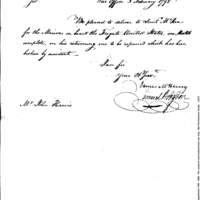 Sir War Office 3 February 1798
Be pleased to deliver to Lieut. McKee
for the Marines on board the Frigate United States, one Match
complete, on his returning one to be repaired which has been
broken by accident.
I am Sir
Your Ob Servt
James McHenry
Samuel Hodgdon
Mr. John Harris